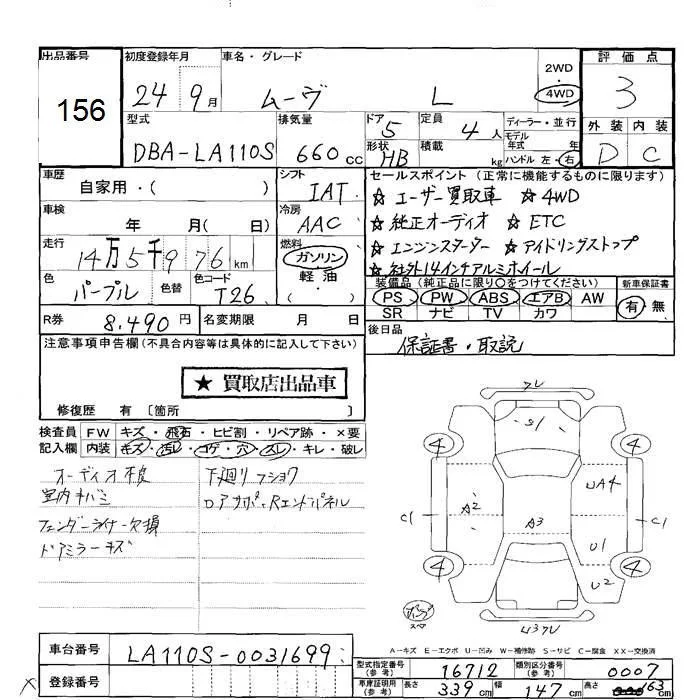 出品番号 156
初度登録年月 24 9月
車名・グレード ムーヴ L
2WD・4WD
評価点 3
型式 DBA-LA110S
排気量 660cc
ドア 5
形状 HB
定員 4人
積載 kg
ディーラー・並行
モデル年式 年
ハンドル 左・右
外装 内装
D C
車歴 自家用・( )
シフト IAT
車検 年 月( 日)
冷房 AAC
走行 14万5千976km
燃料 ガソリン 軽油 (・)
色 パープル 色替 色コード T26
R券 8,490円 名変期限 月 日
セールスポイント(正常に機能するものに限ります)
☆ユーザー買取車 ☆4WD
☆純正オーディオ ☆ETC
☆エンジンスターター ☆アイドリングストップ
☆社外14インチアルミホイール
装備品(純正品に限り○をつけてください)
PS PW ABS エアB AW
SR ナビ TV カワ
新車保証書
有・無
後日品 保証書・取説
注意事項申告欄(不具合内容等は具体的に記入して下さい)
★ 買取店出品車
修復歴 有 〔箇所 〕
検査員 FW キズ・飛石・ヒビ割・リペア跡・×要
記入欄 内装 キズ・汚レ・コゲ・穴・スレ・キレ・破レ
オーディオ不良
室内キバミ
フェンダーライナー欠損
ドアミラーキズ
下廻りフショク
ロアサポ、Rエンドパネル
ワレ
S1
4 4
UA4
C1 A2 A3 C1
U1
4 4
U2
スペア
A-キズ E-エクボ U-凹み W-補修跡 S-サビ C-腐食 XX-交換済
車台番号 LA110S-0031699
登録番号
型式指定番号(参考) 16712 類別区分番号(参考) 0007
車庫証明用(参考) 長さ 339cm 幅 147cm 高さ 163cm